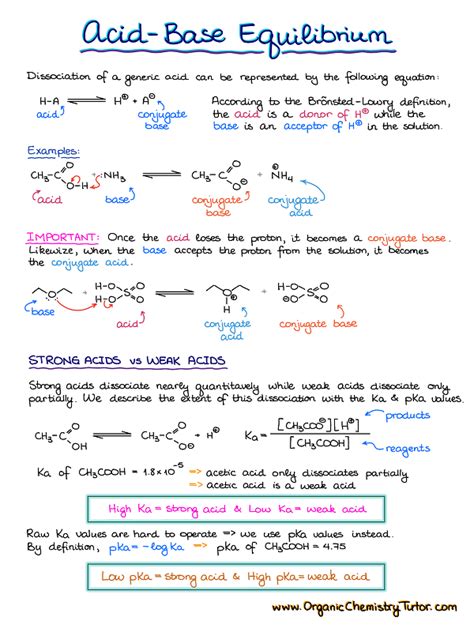 Acid-Base Equilibrium
Dissociation of a generic acid can be represented by the following equation:
H-A ⇌ H⊕ + A⊖
acid
conjugate base
According to the Brönsted-Lowry definition,
the acid is a donor of H⊕ while the
base is an acceptor of H⊕ in the solution.
Examples:
CH₃-C O O-H + :NH₃ ⇌ CH₃-C O O⊖ + ⊕NH₄
acid
base
conjugate base
conjugate acid
IMPORTANT: Once the acid loses the proton, it becomes a conjugate base.
Likewize, when the base accepts the proton from the solution, it becomes
the conjugate acid.
O + H-O H-O S O O ⇌ O⊕ H + H-O ⊖O S O O
base
acid
conjugate acid
conjugate base
STRONG ACIDS vs WEAK ACIDS
Strong acids dissociate nearly quantitavely while weak acids dissociate only
partially. We describe the extent of this dissociation with the Ka & pKa values.
CH₃-C O OH ⇌ CH₃-C O O⊖ + H⊕
Ka = [CH₃COO⊖][H⊕] / [CH₃COOH]
products
reagents
Ka of CH₃COOH = 1.8×10⁻⁵ => acetic acid only dissociates partially
=> acetic acid is a weak acid
High Ka = strong acid & Low Ka = weak acid
Raw Ka values are hard to operate => we use pKa values instead.
By definition, pKa = -log Ka => pKa of CH₃COOH = 4.75
Low pKa = strong acid & High pKa = weak acid
www.OrganicChemistryTutor.com